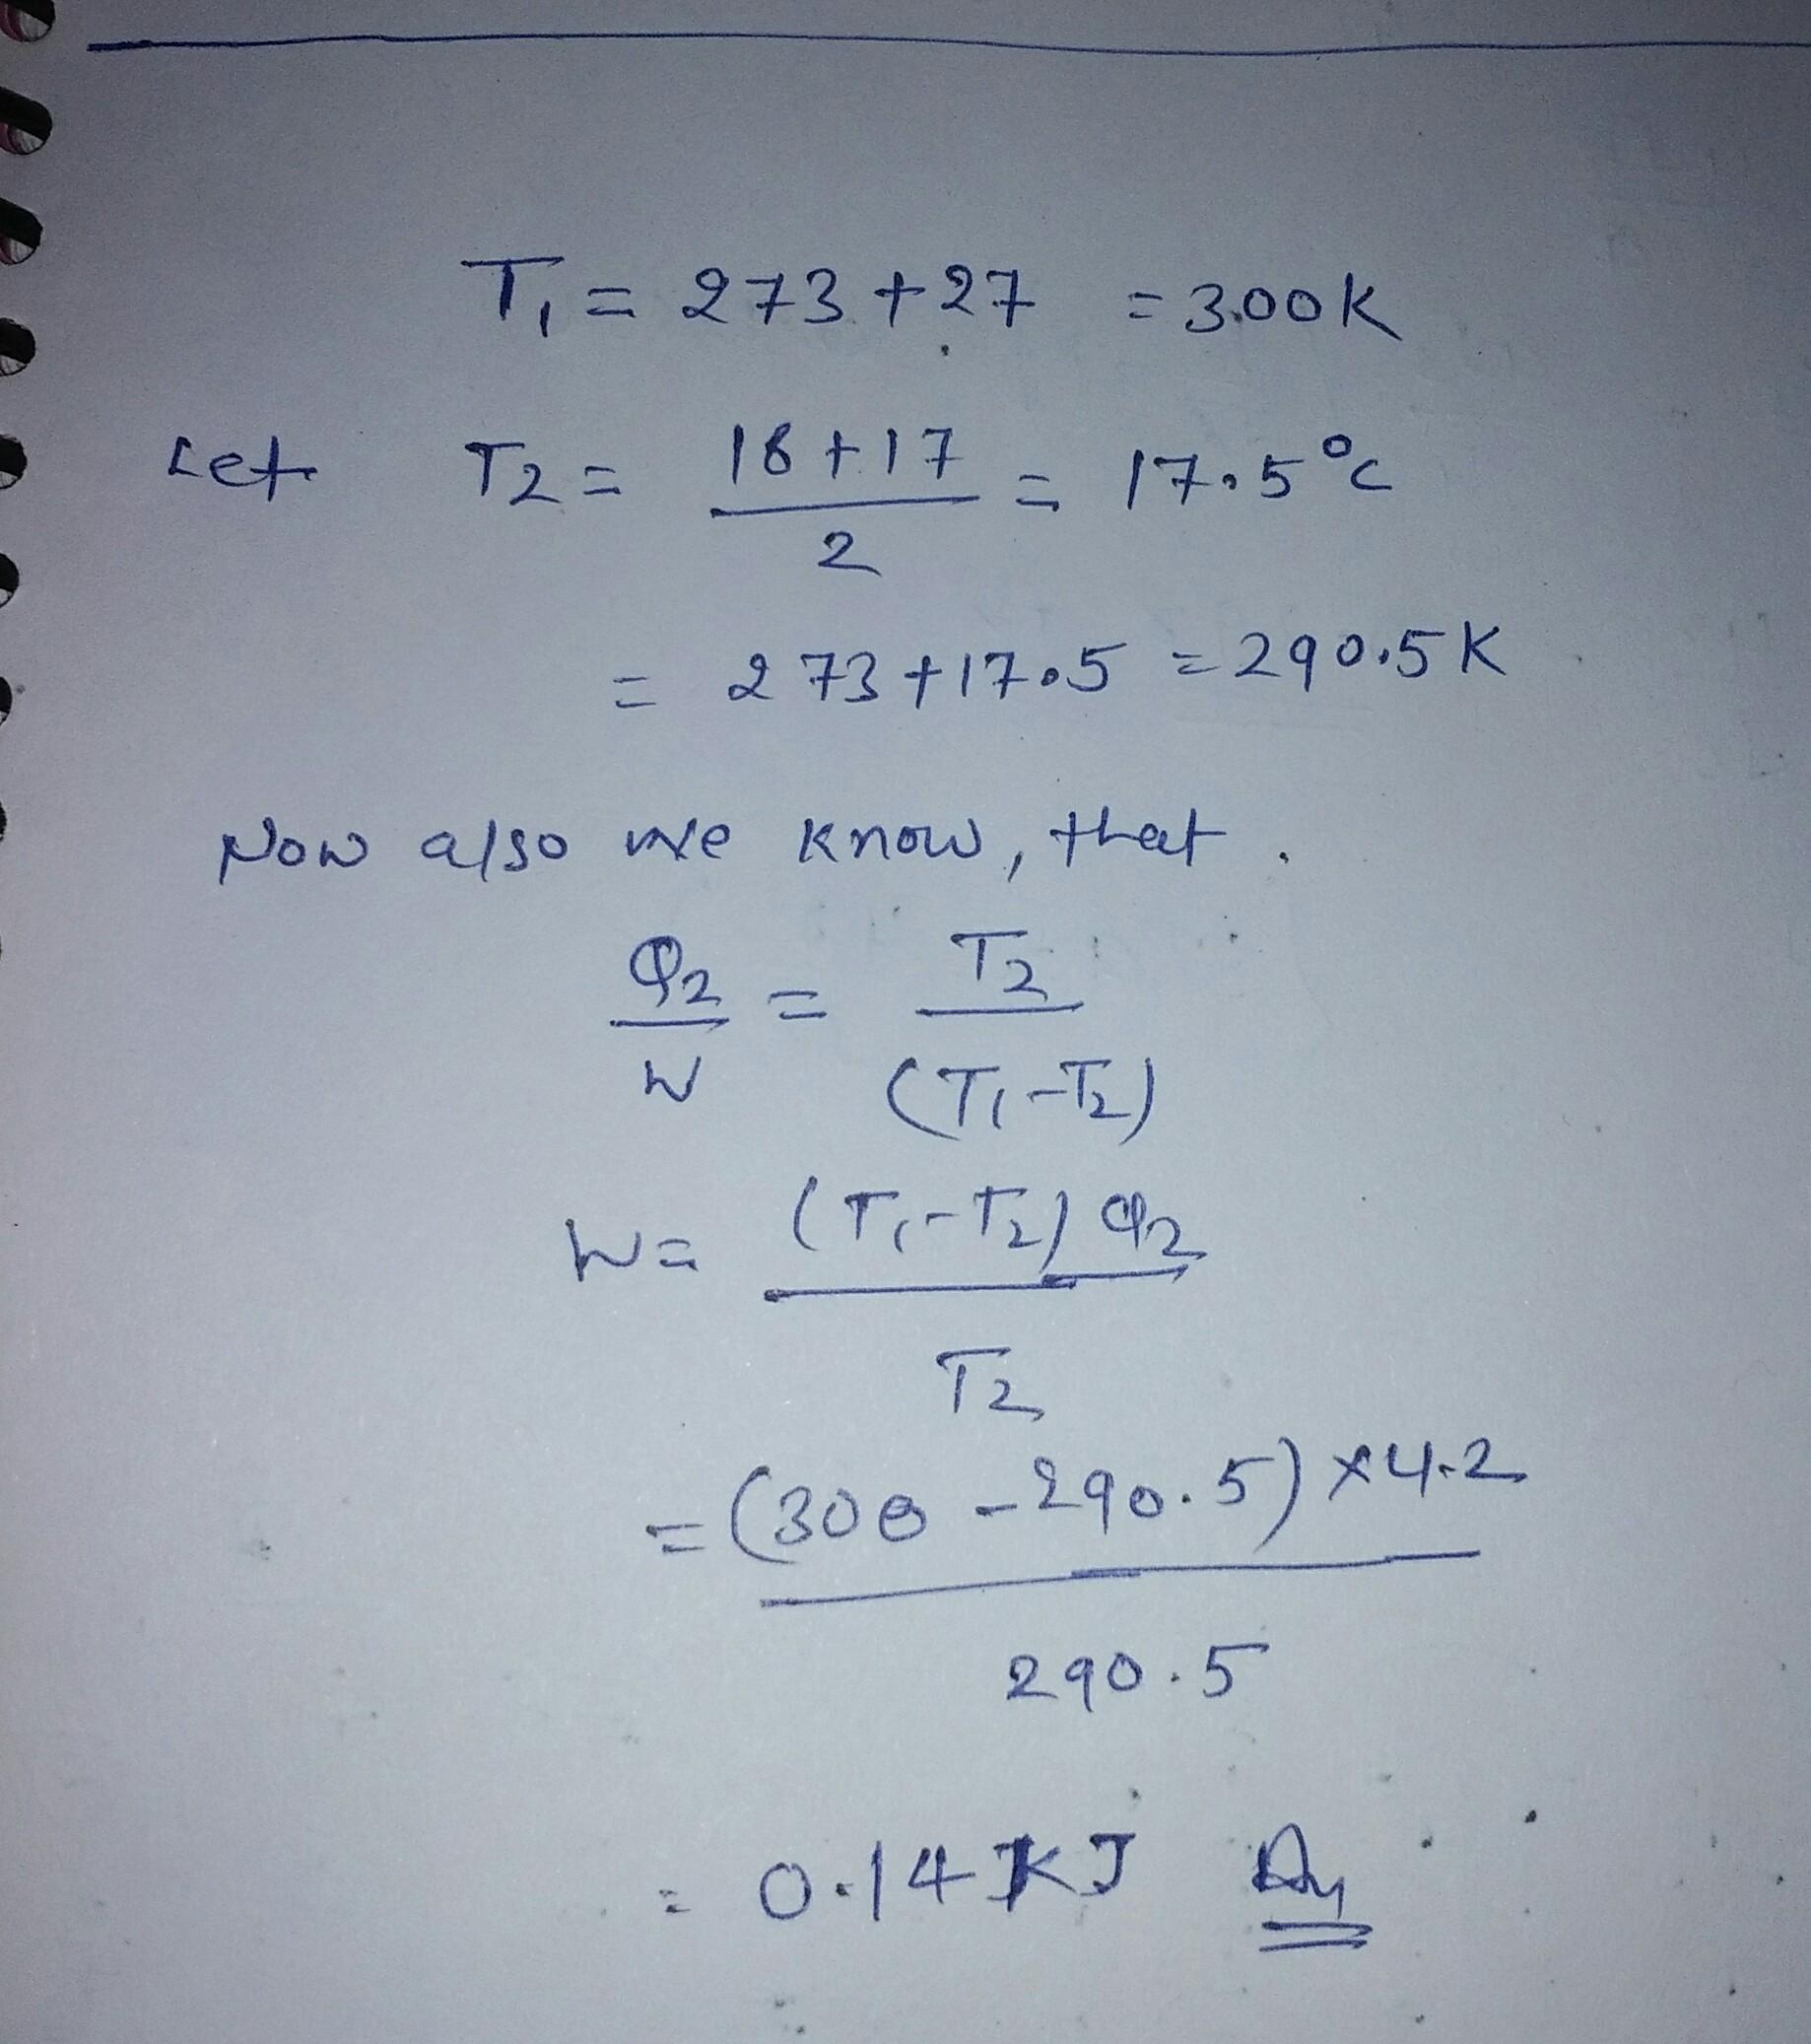 T₁ = 273 + 27 = 300K
Let T2 = 18+17 / 2 = 17.5°C
= 273 + 17.5 = 290.5K
Now also we know, that.
Q2 / W = T2 / (T1-T2)
W = (T1-T2) Q2 / T2
= (300 - 290.5) × 4.2 / 290.5
= 0.14 KJ